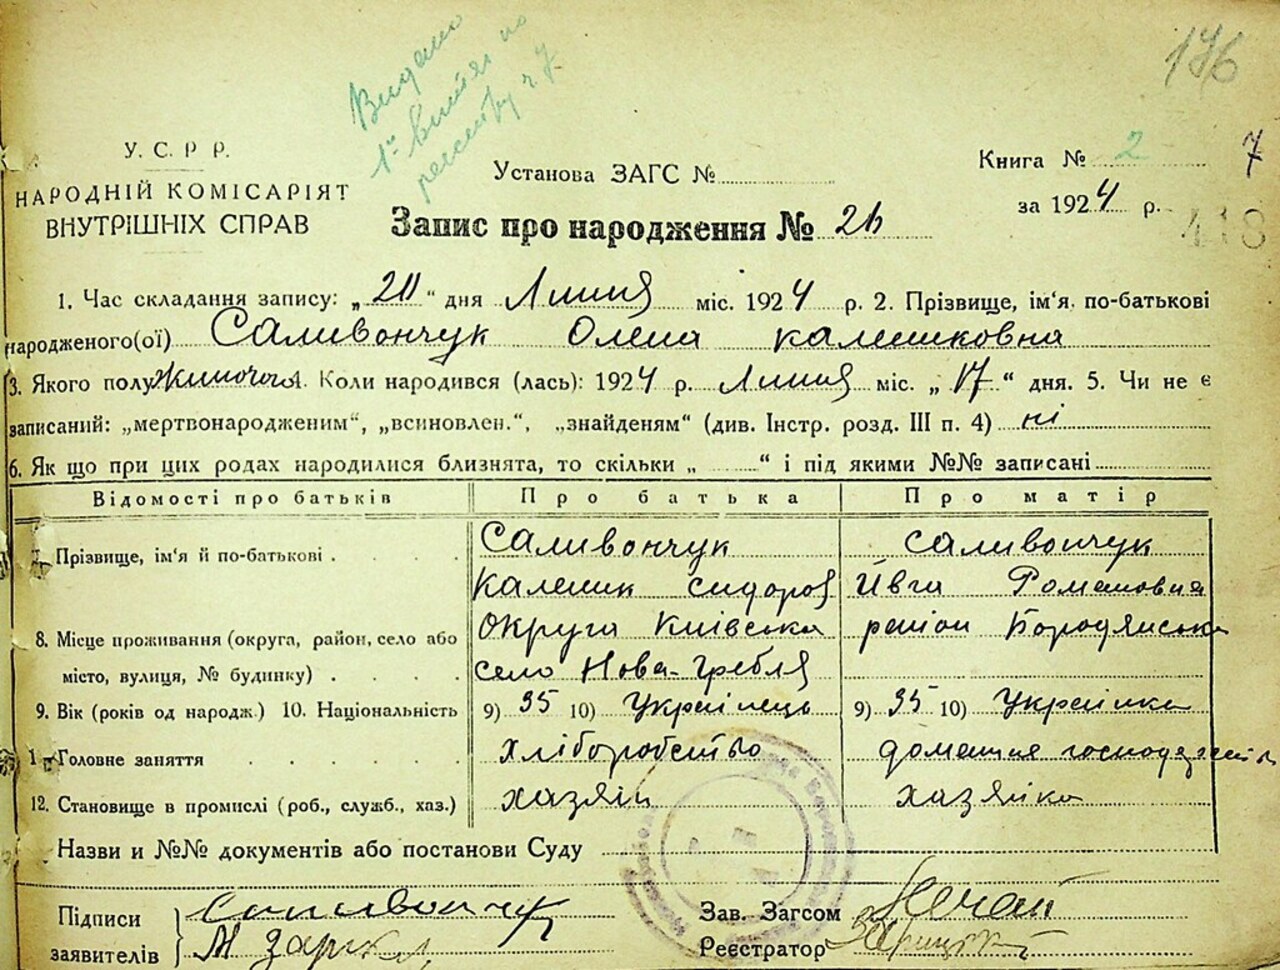 Видано
1й витяг по
реєстру ч 7
176
У. С. Р Р.
НАРОДНІЙ КОМІСАРІЯТ
ВНУТРІШНІХ СПРАВ
Установа ЗАГС №
Книга № 2
7
за 1924 р.
418
Запис про народження №
1. Час складання запису: „20“ дня Липня міс. 1924 р. 2. Прізвище, ім'я, по-батькові
народженого(ої) Саливончук Олена Калениковна
3. Якого полу жиночого 4. Коли народився (лась): 1924 р. Липня міс. „17“ дня. 5. Чи не є
записаний: „мертвонародженим“, „всиновлен.“, „знайденям“ (див. Інстр. розд. III п. 4) ні
6. Як що при цих родах народилися близнята, то скільки „ “ і під якими №№ записані
Відомості про батьків Про батька Про матір
7. Прізвище, ім'я й по-батькові Саливончук Саливончук
Каленик Сидоров Йвга Романовна
8. Місце проживання (округа, район, село або Округа Київська район Бородянська
місто, вулиця, № будинку) село Нова-Гребля
9. Вік (років од народж.) 10. Національність 9) 35 10) Українець 9) 35 10) Українка
Головне заняття хліборобство домашня
12. Становище в промислі (роб., служб., хаз.) хазяін хазяйка
Назви и №№ документів або постанови Суду
Підписи Саливончук Зав. Загсом Нечай
заявителів М Реєстратор